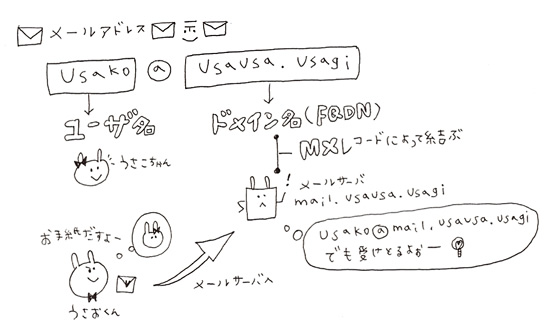 メールアドレス
usako @ usausa.usagi
ユーザ名
ドメイン名(FQDN)
うさこちゃん
MXレコードによって結ぶ
!
メールサーバ
mail.usausa.usagi
お手紙だすよー
usako@mail.usausa.usagi
でも受けとるよぉー
メールサーバへ
うさおくん